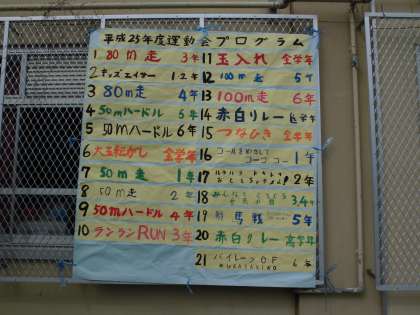 平成25年度運動会プログラム
1 80m走 3年
2 キッズエイサー 1.2年
3 80m走 4年
4 50mハードル 5年
5 50mハードル 6年
6 大玉転がし 全学年
7 50m走 1年
8 50m走 2年
9 50mハードル 4年
10 ランランRUN 3年
11 玉入れ 全学年
12 100m走 5年
13 100m走 6年
14 赤白リレー 低学年
15 つなひき 全学年
16 ゴールをめざして ゴーゴゴー 1年
17 2年
18 みんなと 3.4年
19 騎馬戦 5年
20 赤白リレー 高学年
21 パイレーツOF 6年